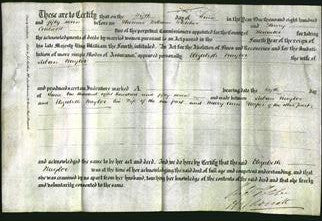 These are to Certify that on the fifth day of June in the Year One thousand eight hundred
and fifty before us Thomas and Henry
two of the perpetual Commissioners appointed for the County of for taking
the acknowledgments of deeds by married women pursuant to an Act passed in the Fourth Year of the reign of
his late Majesty King William the Fourth, intituled "An Act for the Abolition of Fines and Recoveries and for the Substitu-
tion of more simple Modes of Assurance," appeared personally Elizabeth Naylor the wife of
Naylor
and produced a certain Indenture marked A bearing date the fifth day
of June One thousand eight hundred and fifty and made between Naylor
and Elizabeth Naylor his Wife of the one part and Mary of the other part
and acknowledged the same to be her act and deed. And we do hereby Certify that the said Elizabeth
Naylor was at the time of her acknowledging the said deed of full age and competent understanding, and that
she was examined by us apart from her husband, touching her knowledge of the contents of the said deed, and that she freely
and voluntarily consented to the same.